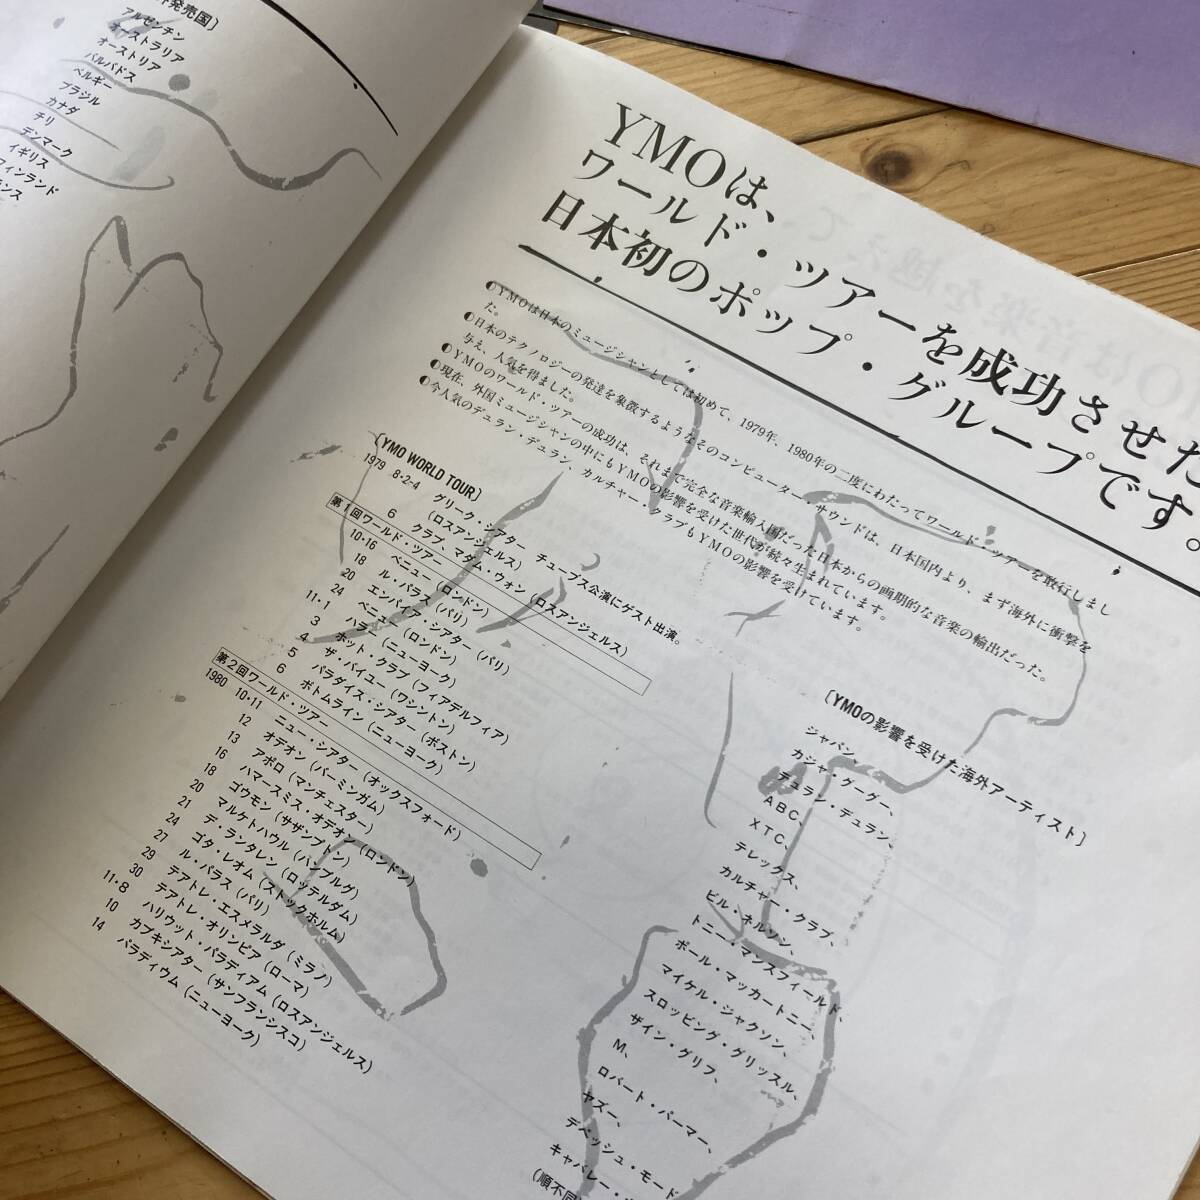 発売国]
アルゼンチン
オーストラリア
オーストリア
バルバドス
ベルギー
ブラジル
カナダ
チリ
デンマーク
イギリス
フィンランド
ランス
YMOは、
ワールド・ツアーを成功させた
日本初のポップ・グループです。
◐YMOは日本のミュージシャンとしては初めて、1979年、1980年の二度にわたってワールド・ツアーを敢行しまし
た。
◐日本のテクノロジーの発達を象徴するようなそのコンピューター・サウンドは、日本国内より、まず海外に衝撃を
与え、人気を得ました。
◐YMOのワールド・ツアーの成功は、それまで完全な音楽輸入国だった日本からの画期的な音楽の輸出だった。
◐現在、外国ミュージシャンの中にもYMOの影響を受けた世代が続々生まれています。
◐今人気のデュラン・デュラン、カルチャー・クラブもYMOの影響を受けています。
[YMO WORLD TOUR]
1979 8・2-4 グリーク・シアター チューブス公演にゲスト出演。
(ロスアンジェルス)
6 クラブ、マダム・ウォン (ロスアンジェルス)
第1回ワールド・ツアー
10・16 ベニュー (ロンドン)
18 ル・パラス (パリ)
20 エンパイア・シアター (パリ)
24 ベニュー (ロンドン)
11・1 ハラー (ニューヨーク)
3 ホット・クラブ (フィアデルフィア)
4 ザ・バイユー (ワシントン)
5 パラダイス・シアター (ボストン)
6 ボトムライン (ニューヨーク)
第2回ワールド・ツアー
1980 10・11 ニュー・シアター (オックスフォード)
12 オデオン (バーミンガム)
13 アポロ (マンチェスター)
16 ハマースミス・オデオン (ロンドン)
18 ゴウモン (サザンプトン)
20 マルケトハウル (ハンブルグ)
21 デ・ランタレン (ロッテルダム)
24 ゴタ・レオム (ストックホルム)
27 ル・パラス (パリ)
29 テアトレ・エスメラルダ (ミラノ)
30 テアトレ・オリンピア (ローマ)
11・8 ハリウット・パラディアム (ロスアンジェルス)
10 カブキシアター (サンフランシスコ)
14 パラディウム (ニューヨーク)
[YMOの影響を受けた海外アーティスト]
ジャパン、
カジャ・グーグー、
デュラン・デュラン、
ABC、
XTC、
テレックス、
カルチャー・クラブ、
ビル・ネルソン、
トニー・マンスフィールド、
ポール・マッカートニー、
マイケル・ジャクソン、
スロッピング・グリッスル、
ザイン・グリフ、
M、
ロバート・パーマー、
ヤズー、
デペッシュ・モード
キャバレー・
(順不同)